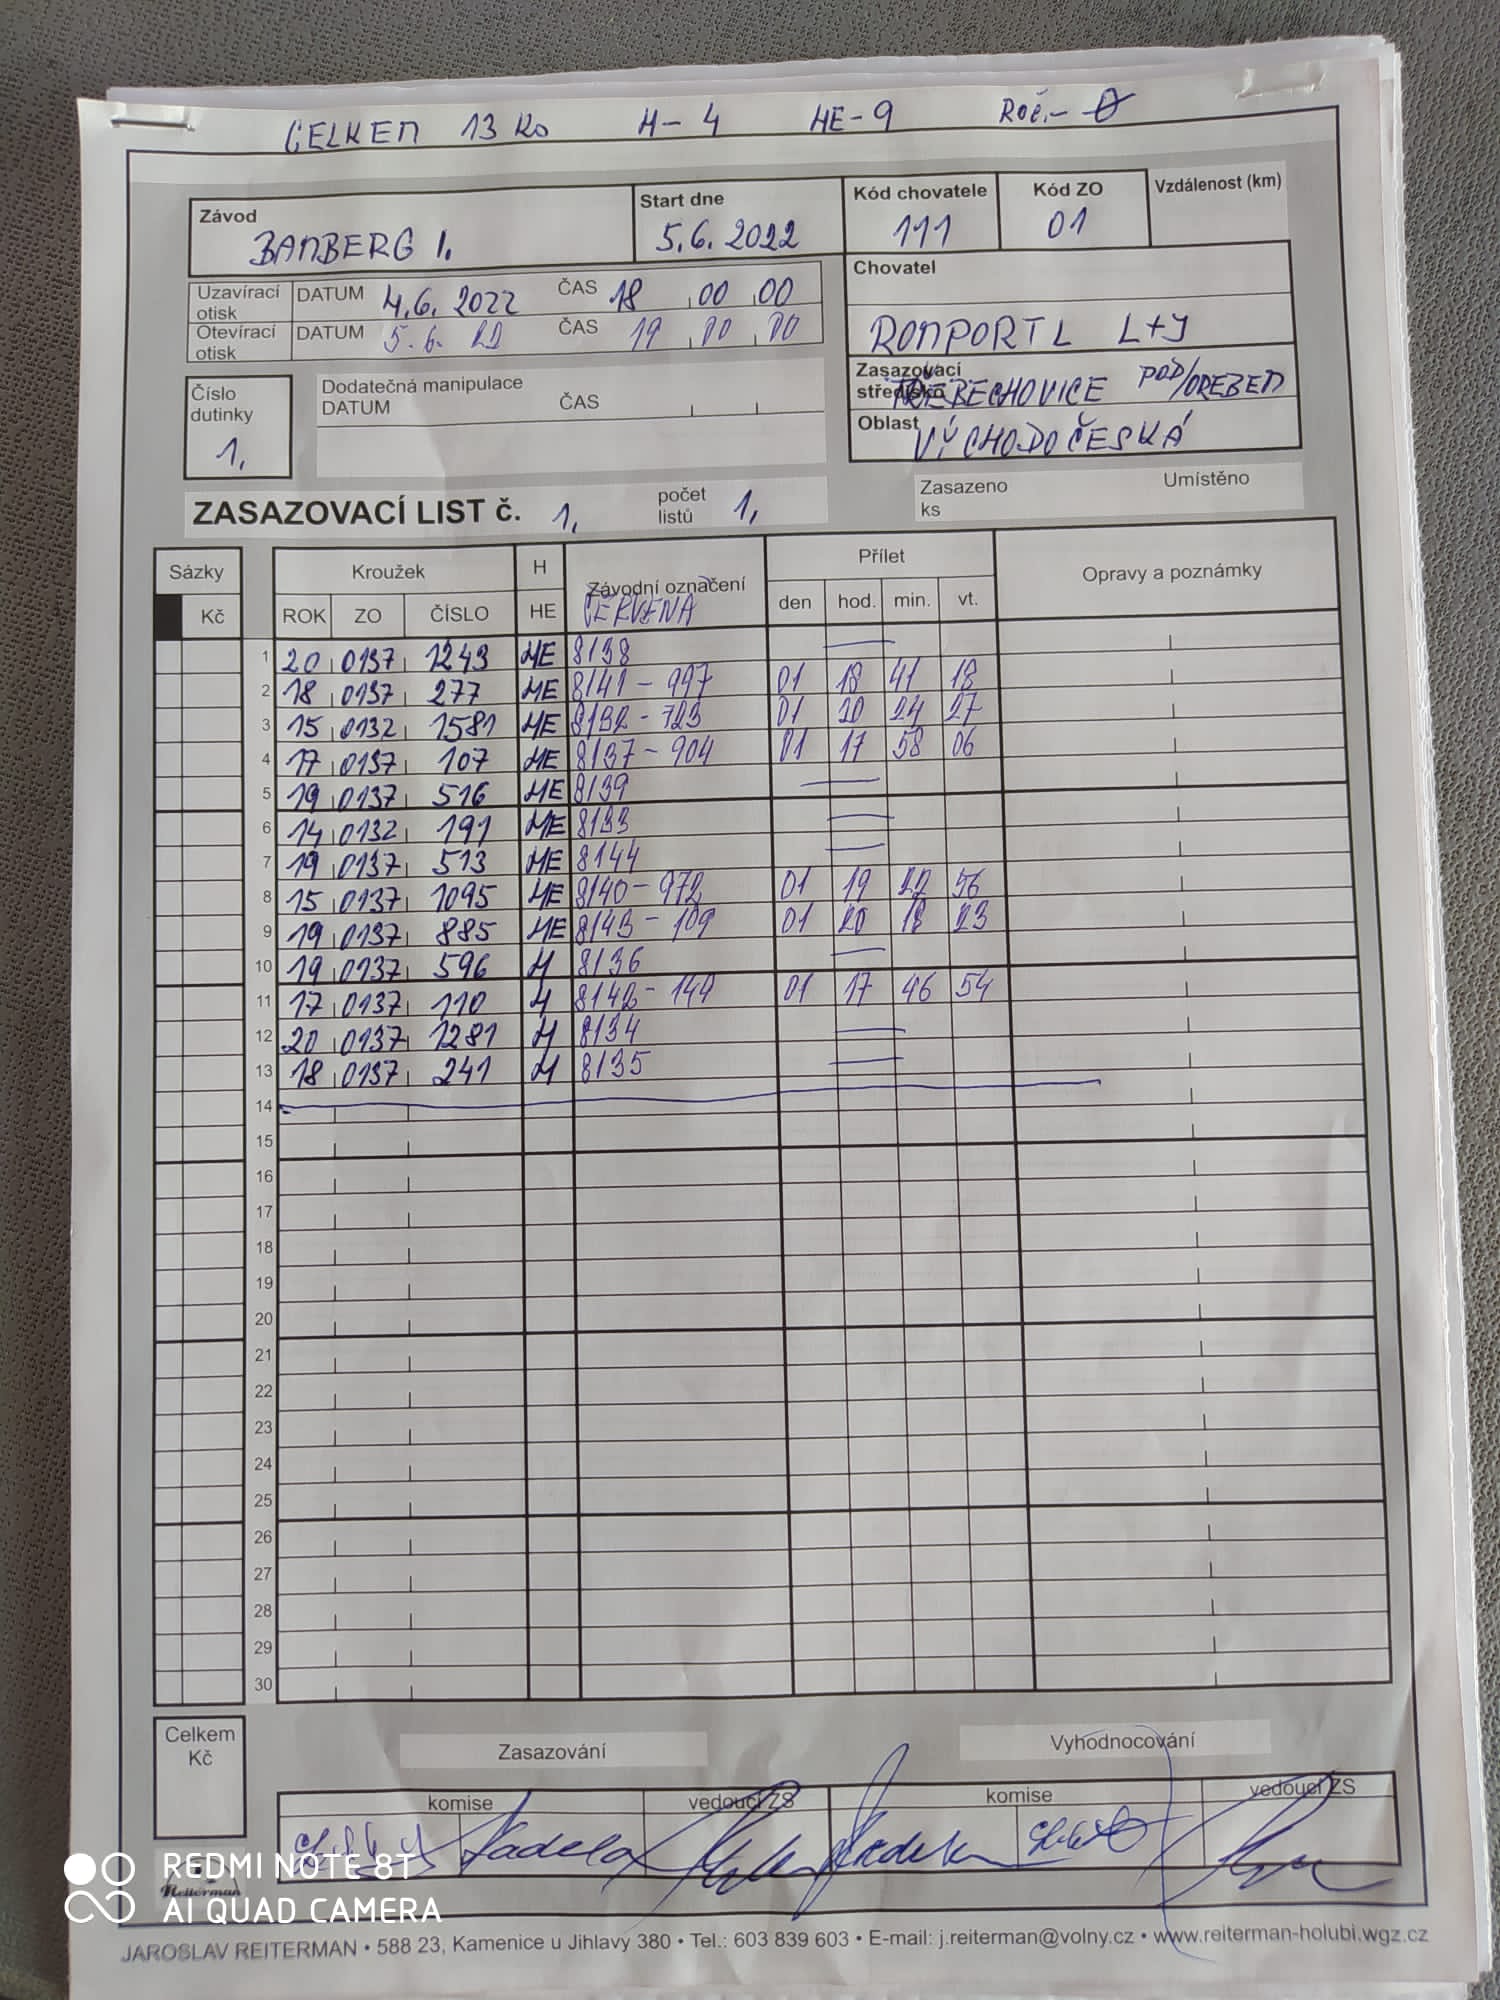 CELKEM 13 ks H-4 HE-9 Roč.-0
Závod Start dne Kód chovatele Kód ZO Vzdálenost (km)
BAMBERG I. 5.6.2022 111 01
Uzavírací otisk DATUM 4.6.2022 ČAS 18 00 00
Otevírací otisk DATUM 5.6. ČAS 19 00 00
Chovatel
ROMPORTL L+J
Číslo dutinky 1.
Dodatečná manipulace
DATUM ČAS
Zasazovací středisko TŘEBECHOVICE POD/OREBEM
Oblast VÝCHODOČESKÁ
ZASAZOVACÍ LIST č. 1. počet listů 1.
Zasazeno ks Umístěno
Sázky Kroužek H Závodní označení Přílet Opravy a poznámky
Kč ROK ZO ČÍSLO HE ČERVENÁ den hod. min. vt.
1 20 0137 1243 HE 8138 —
2 18 0137 277 HE 8141 - 997 01 18 41 18
3 15 0132 1581 HE 8132 - 723 01 20 24 27
4 17 0137 107 HE 8137 - 904 01 17 58 06
5 19 0137 516 HE 8139 —
6 14 0132 191 HE 8133 —
7 19 0137 513 HE 8144 —
8 15 0137 1095 HE 8140 - 972 01 19 22 56
9 19 0137 885 HE 8143 - 109 01 20 18 23
10 19 0137 596 H 8136 —
11 17 0137 110 H 8142 - 149 01 17 46 54
12 20 0137 1281 H 8134 —
13 18 0137 241 H 8135 —
14
15
16
17
18
19
20
21
22
23
24
25
26
27
28
29
30
Celkem Kč
Zasazování Vyhodnocování
komise vedoucí ZS komise vedoucí ZS
Reiterman
REDMI NOTE 8T
AI QUAD CAMERA
JAROSLAV REITERMAN • 588 23, Kamenice u Jihlavy 380 • Tel.: 603 839 603 • E-mail: j.reiterman@volny.cz • www.reiterman-holubi.wgz.cz